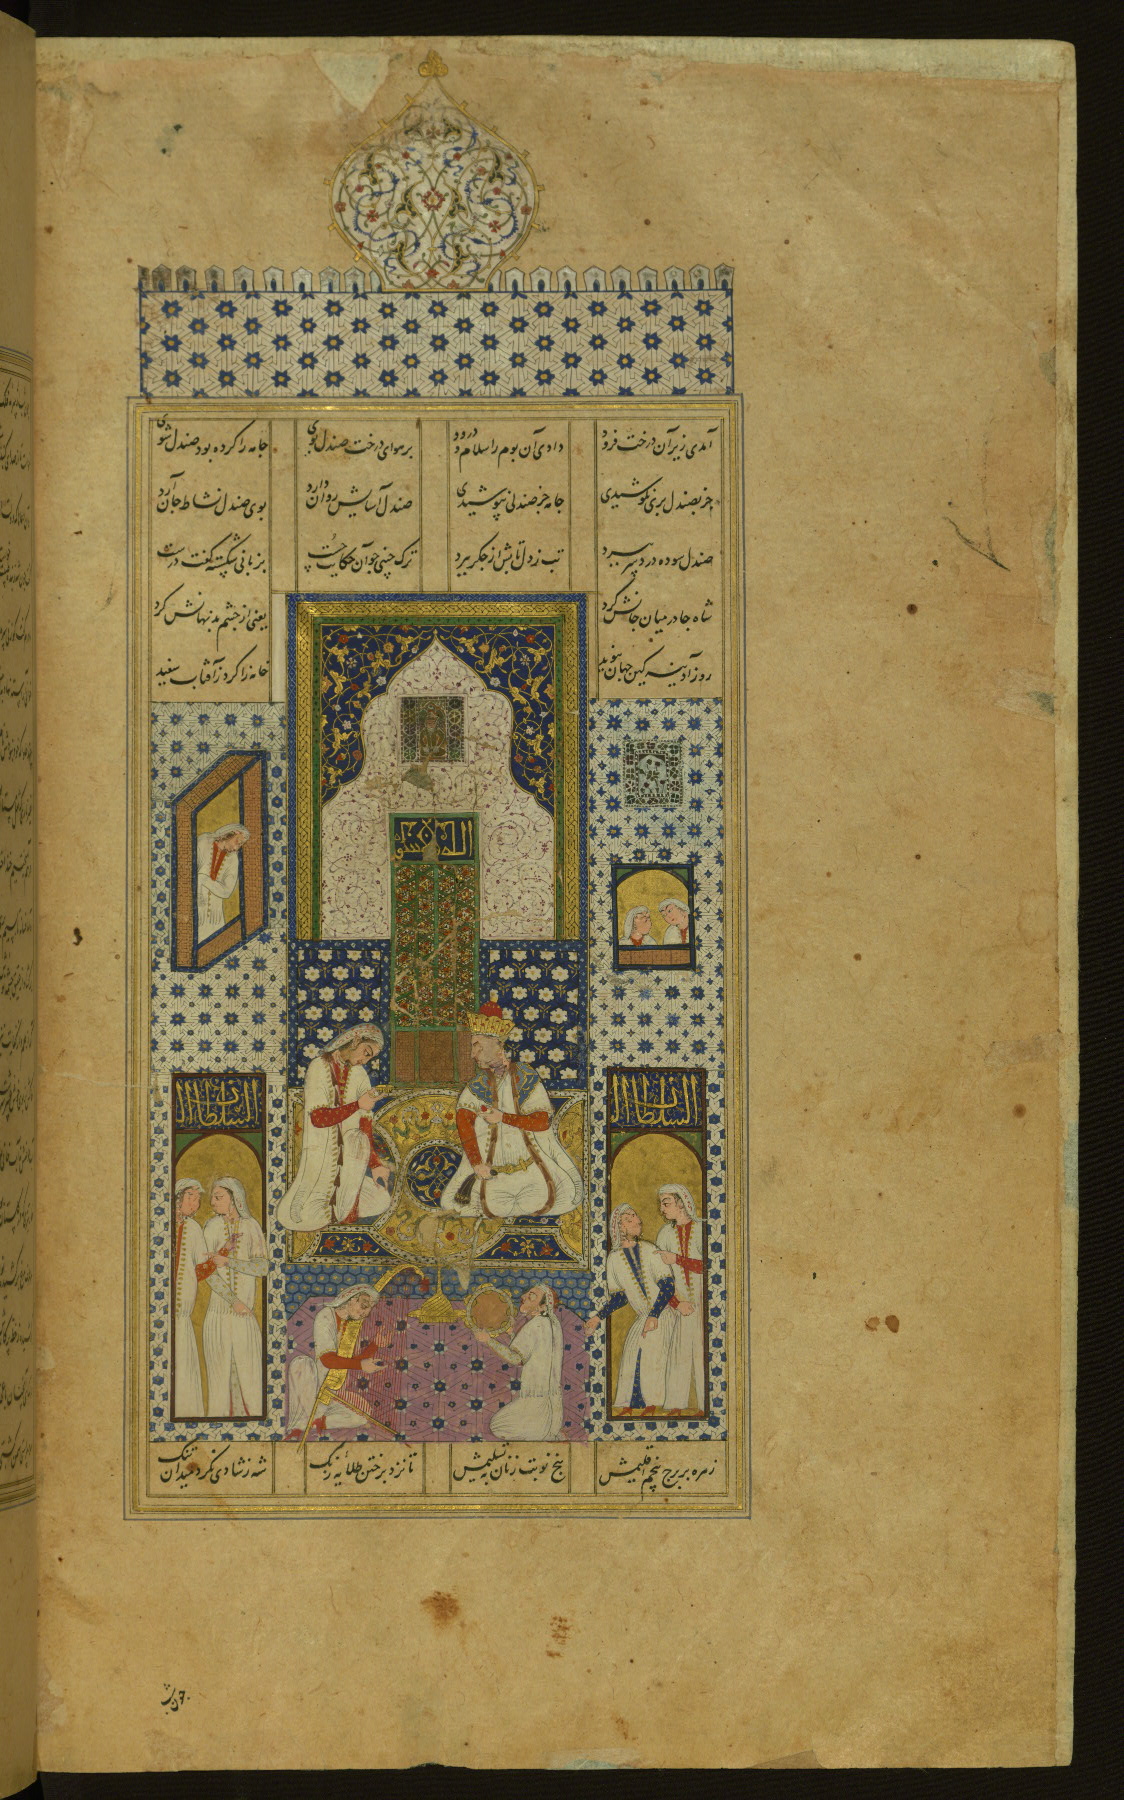 آمدی زیر آن درخت فرود دادی آن بوم را سلام و درود بر هوای درخت صندل بوی جامه را کرده بود صندل شوی
جز بصندل بری نکوشیدی جامه جز صندلی نپوشیدی صندل آسایش روان دارد بوی صندل نشاط جان آرد
صندل سوده درد سر ببرد تب ز دل تابش از جگر ببرد ترک چینی چو آن حکایت چست بزبانی شکسته گفت درست
شاه جا در میان جانش کرد یعنی از چشم بد نهانش کرد
روز آدینه کین جهان خانه را کرد ز آفتاب سفید
الله
السلطان
السلطان
زهره بر برج پنجم اقلیمش پنج نوبت زنان به تسلیمش تا نزد بر ختن طلایه زنگ شه ز شادی نکرد میدان تنگ
چون شب